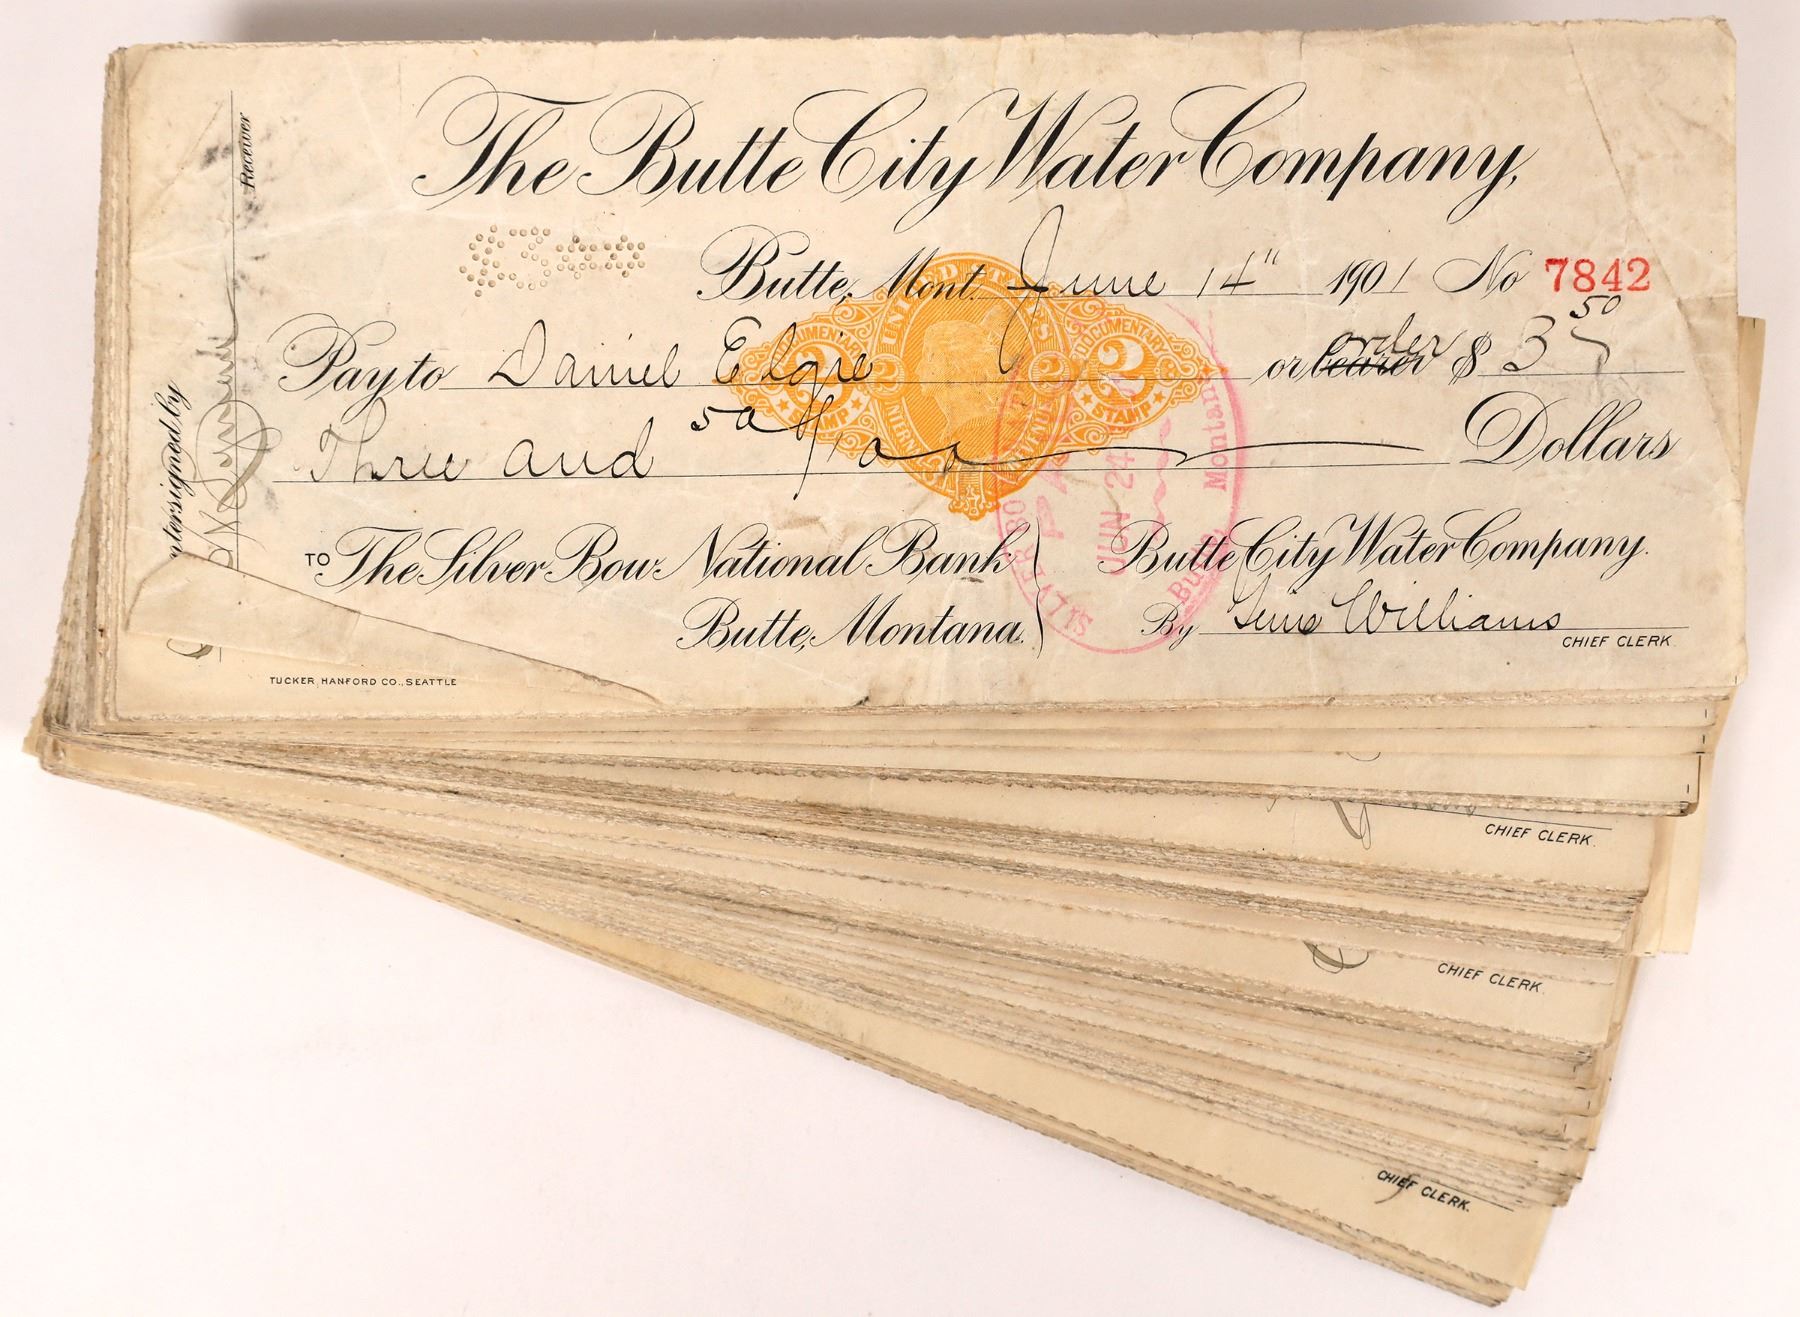 The Butte City Water Company,
$3**
Butte, Mont. June 14" 1901 No 7842
Pay to Daniel Elgie or bearer order $ 3 50
Three and 50/100 Dollars
TO The Silver Bow National Bank
Butte, Montana.
Butte City Water Company.
By Williams
CHIEF CLERK.
TUCKER, HANFORD CO., SEATTLE
Receiver
ntersigned by
UNITED STATES
DOCUMENTARY
2 2 2 2
STAMP STAMP
INTERNAL REVENUE
SILVER BOW NATIONAL
PAID
JUN 24
Butte, Montana
CHIEF CLERK.
CHIEF CLERK.
CHIEF CLERK.